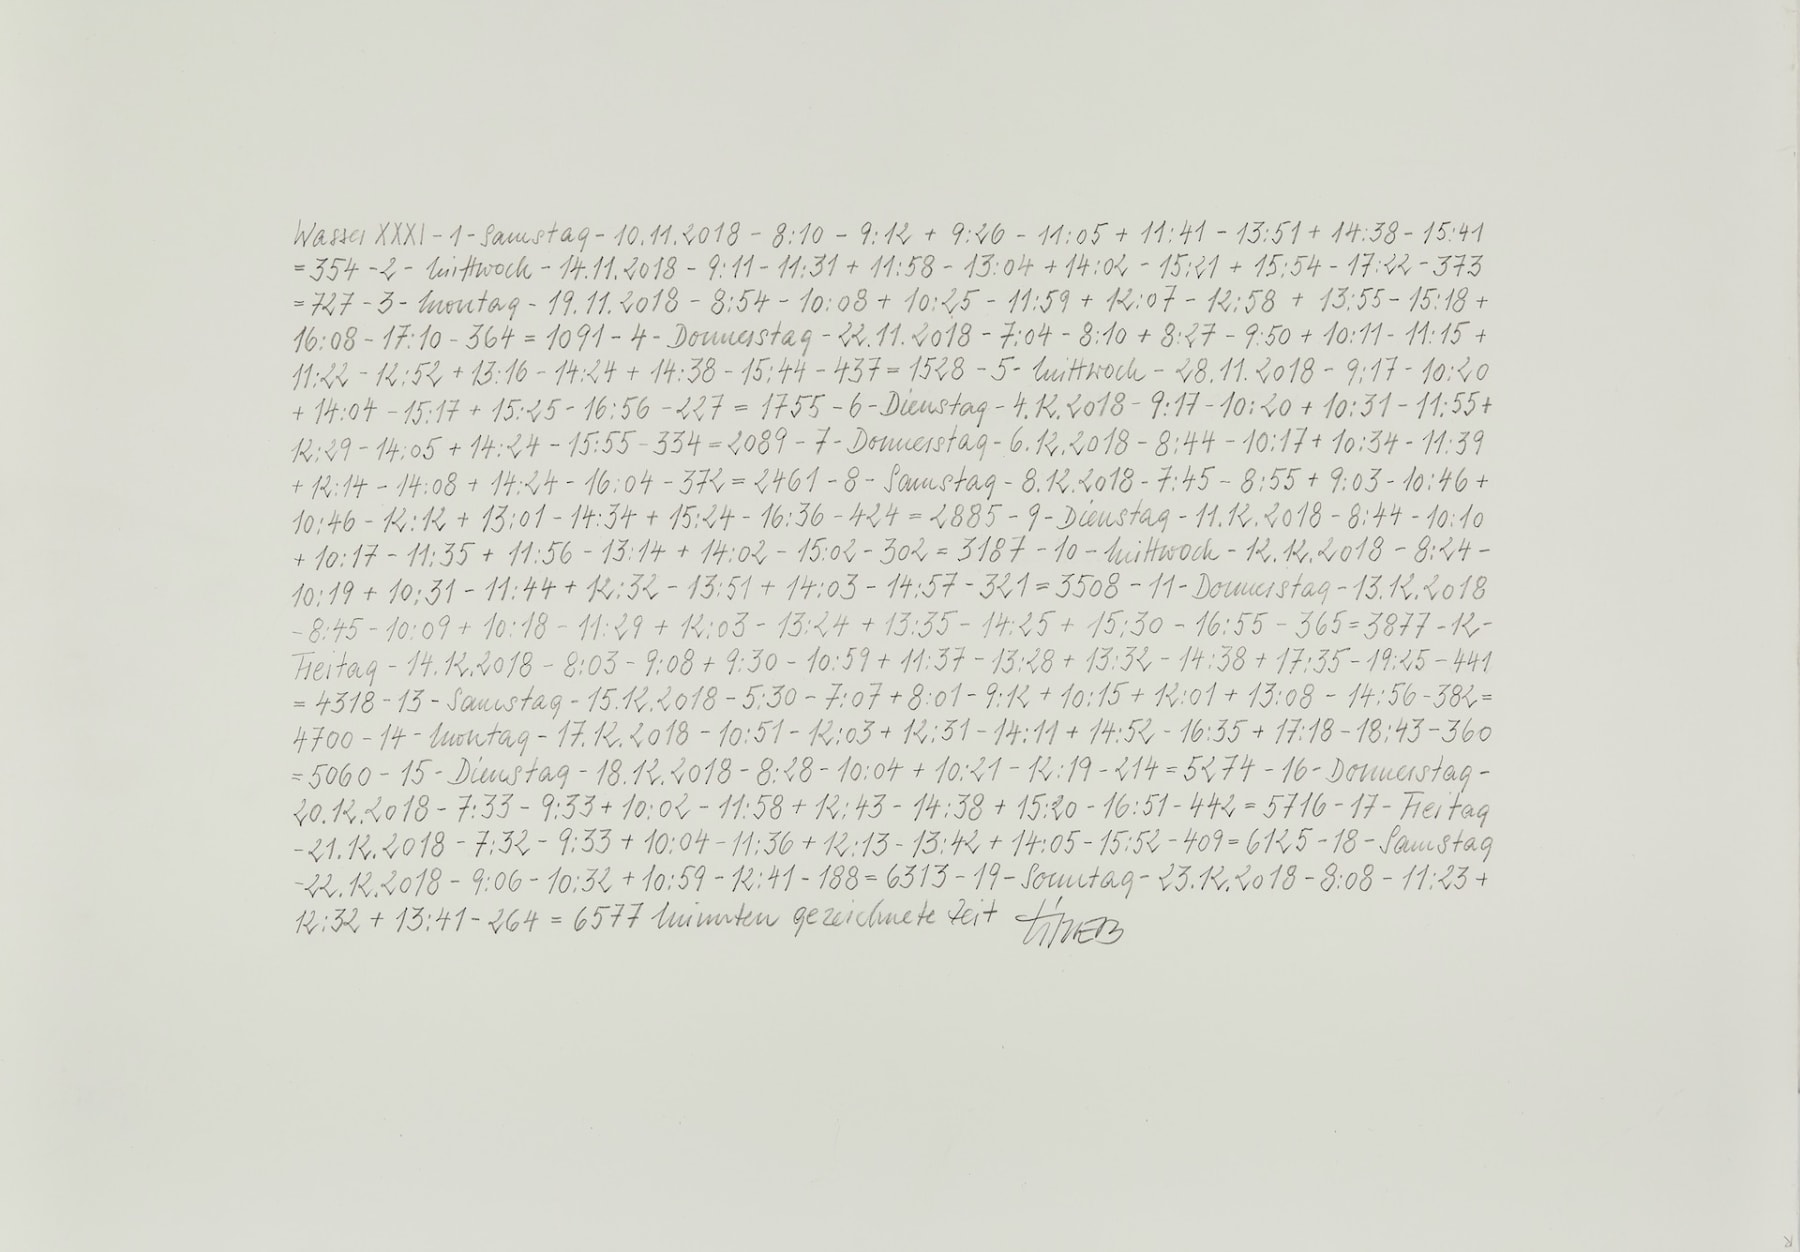 Wasser XXXI - 1 - Samstag - 10.11.2018 - 8:10 - 9:12 + 9:26 - 11:05 + 11:41 - 13:51 + 14:38 - 15:41
= 354 - 2 - Mittwoch - 14.11.2018 - 9:11 - 11:31 + 11:58 - 13:04 + 14:02 - 15:21 + 15:54 - 17:22 - 373
= 727 - 3 - Montag - 19.11.2018 - 8:54 - 10:08 + 10:25 - 11:59 + 12:07 - 12:58 + 13:55 - 15:18 +
16:08 - 17:10 - 364 = 1091 - 4 - Donnerstag - 22.11.2018 - 7:04 - 8:10 + 8:27 - 9:50 + 10:11 - 11:15 +
11:22 - 12:52 + 13:16 - 14:24 + 14:38 - 15:44 - 437 = 1528 - 5 - Mittwoch - 28.11.2018 - 9:17 - 10:20
+ 14:04 - 15:17 + 15:25 - 16:56 - 227 = 1755 - 6 - Dienstag - 4.12.2018 - 9:17 - 10:20 + 10:31 - 11:55 +
12:29 - 14:05 + 14:24 - 15:55 - 334 = 2089 - 7 - Donnerstag - 6.12.2018 - 8:44 - 10:17 + 10:34 - 11:39
+ 12:14 - 14:08 + 14:24 - 16:04 - 372 = 2461 - 8 - Samstag - 8.12.2018 - 7:45 - 8:55 + 9:03 - 10:46 +
10:46 - 12:12 + 13:01 - 14:34 + 15:24 - 16:36 - 424 = 2885 - 9 - Dienstag - 11.12.2018 - 8:44 - 10:10
+ 10:17 - 11:35 + 11:56 - 13:14 + 14:02 - 15:02 - 302 = 3187 - 10 - Mittwoch - 12.12.2018 - 8:24 -
10:19 + 10:31 - 11:44 + 12:32 - 13:51 + 14:03 - 14:57 - 321 = 3508 - 11 - Donnerstag - 13.12.2018
- 8:45 - 10:09 + 10:18 - 11:29 + 12:03 - 13:24 + 13:35 - 14:25 + 15:30 - 16:55 - 365 = 3877 - 12 -
Freitag - 14.12.2018 - 8:03 - 9:08 + 9:30 - 10:59 + 11:37 - 13:28 + 13:32 - 14:38 + 17:35 - 19:25 - 441
= 4318 - 13 - Samstag - 15.12.2018 - 5:30 - 7:07 + 8:01 - 9:12 + 10:15 + 12:01 + 13:08 - 14:56 - 382 =
4700 - 14 - Montag - 17.12.2018 - 10:51 - 12:03 + 12:31 - 14:11 + 14:52 - 16:35 + 17:18 - 18:43 - 360
= 5060 - 15 - Dienstag - 18.12.2018 - 8:28 - 10:04 + 10:21 - 12:19 - 214 = 5274 - 16 - Donnerstag -
20.12.2018 - 7:33 - 9:33 + 10:02 - 11:58 + 12:43 - 14:38 + 15:20 - 16:51 - 442 = 5716 - 17 - Freitag
- 21.12.2018 - 7:32 - 9:33 + 10:04 - 11:36 + 12:13 - 13:42 + 14:05 - 15:52 - 409 = 6125 - 18 - Samstag
- 22.12.2018 - 9:06 - 10:32 + 10:59 - 12:41 - 188 = 6313 - 19 - Sonntag - 23.12.2018 - 8:08 - 11:23 +
12:32 + 13:41 - 264 = 6577 Minuten gezeichnete Zeit